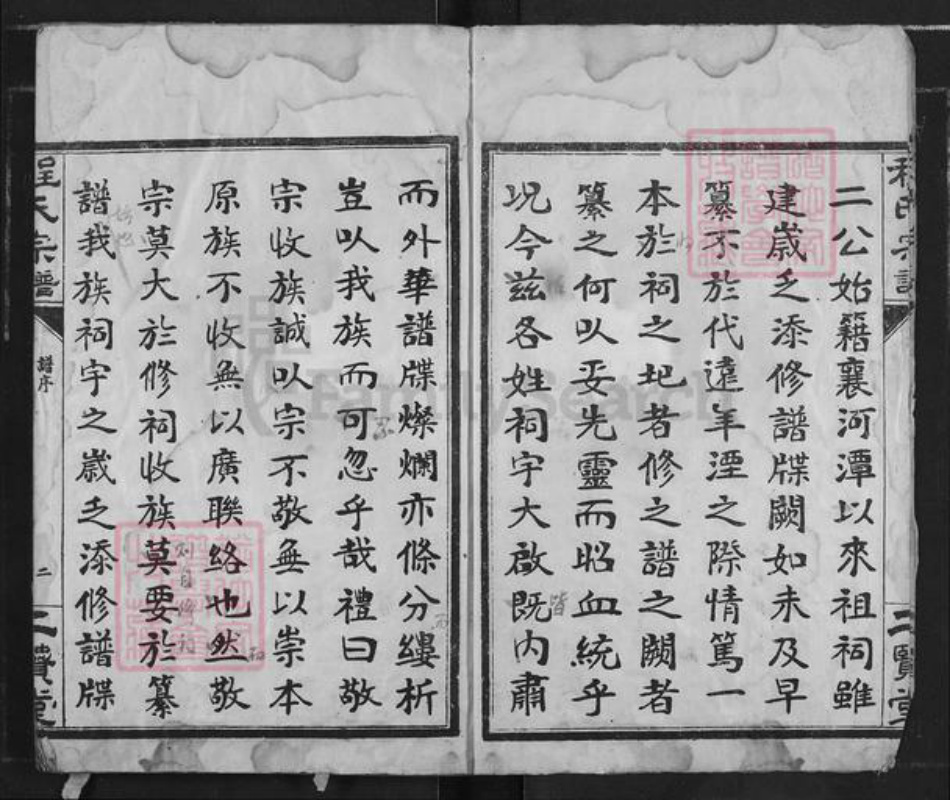 二公始籍襄河潭以來祖祠雖
建歲乏添修譜牒闕如未及早
纂不於代遠年湮之際情篤一
本於祠之圮者修之譜之闕者
纂之何以妥先靈而昭血統乎
况今兹各姓祠宇大啟既内肅
而外華譜牒燦爛亦條分縷析
豈以我族而可忽乎哉禮曰敬
宗收族誠以宗不敬無以崇本
原族不收無以廣聯絡也然敬
宗莫大於修祠收族莫要於纂
譜我族祠宇之歲乏添修譜牒
程氏宗譜
譜序
二
二賢堂
FamilySearch